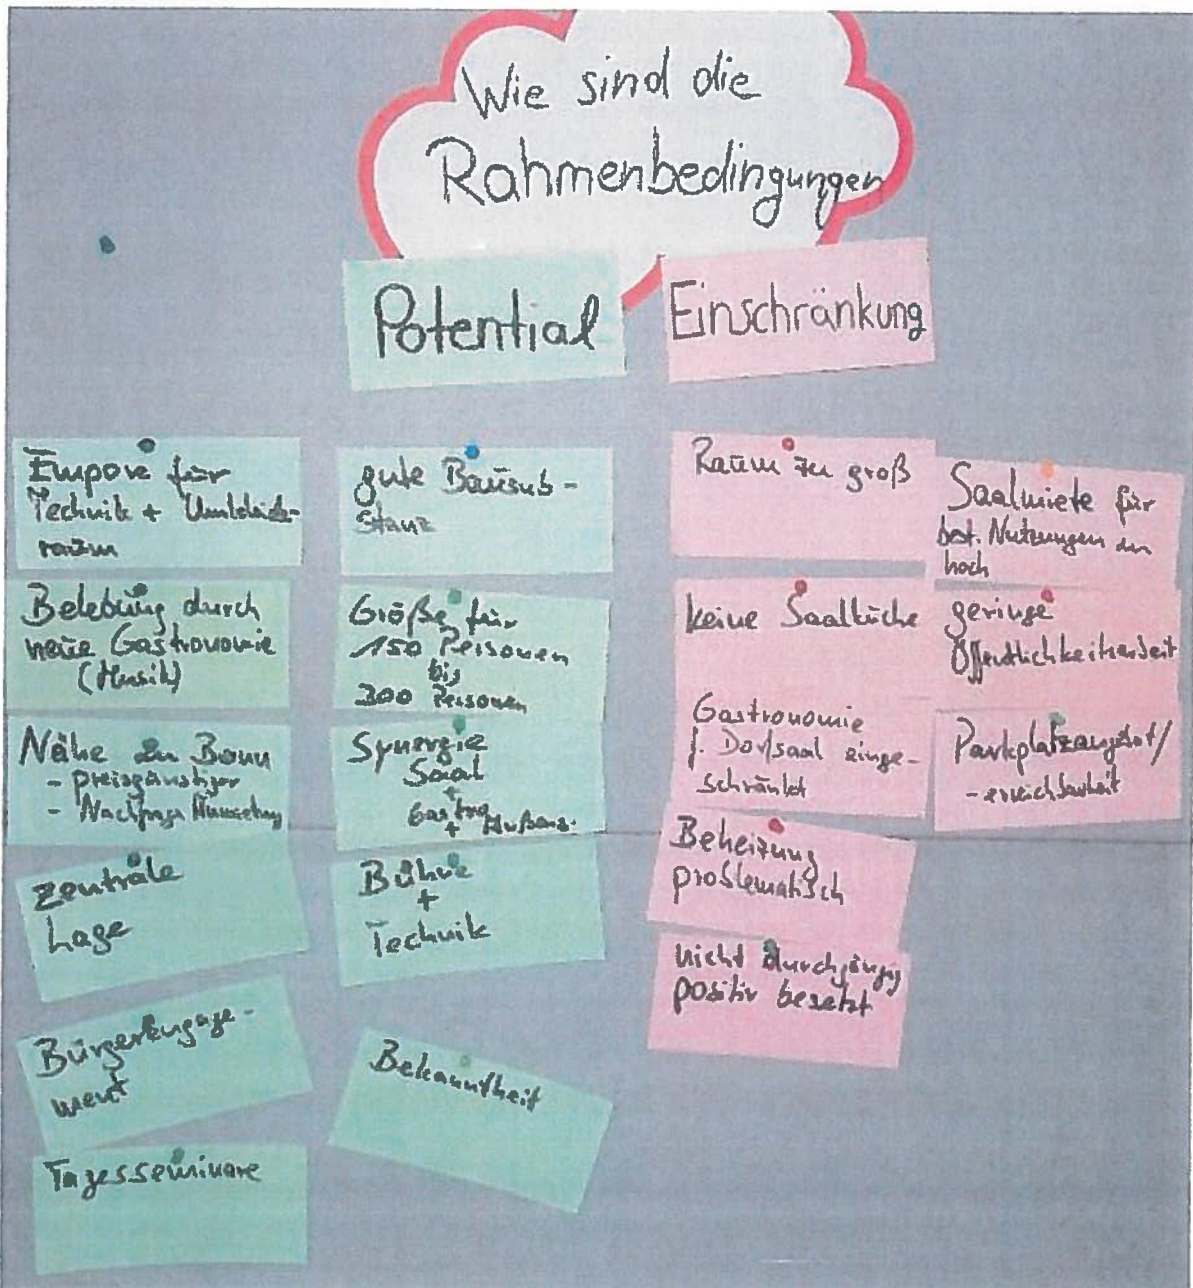 Wie sind die
Rahmenbedingungen
Potential
Einschränkung
Empore für
Technik + Umkleide-
raum
Belebung durch
neue Gastronomie
(Musik)
Nähe zu Bonn
- preisgünstiger
- Nachfrage
zentrale
Lage
Bürgerengage-
ment
Tagesseminare
gute Bausub-
stanz
Größe für
150 Personen
bis
300 Personen
Synergie
Saal
+
Gastro
+ Außeng.
Bühne
+
Technik
Bekanntheit
Raum zu groß
keine Saalküche
Gastronomie
f. Dorfsaal einge-
schränkt
Beheizung
problematisch
nicht durchgängig
positiv besetzt
Saalmiete für
best. Nutzungen zu
hoch
geringe
Öffentlichkeitsarbeit
Parkplatzangebot/
-erreichbarkeit